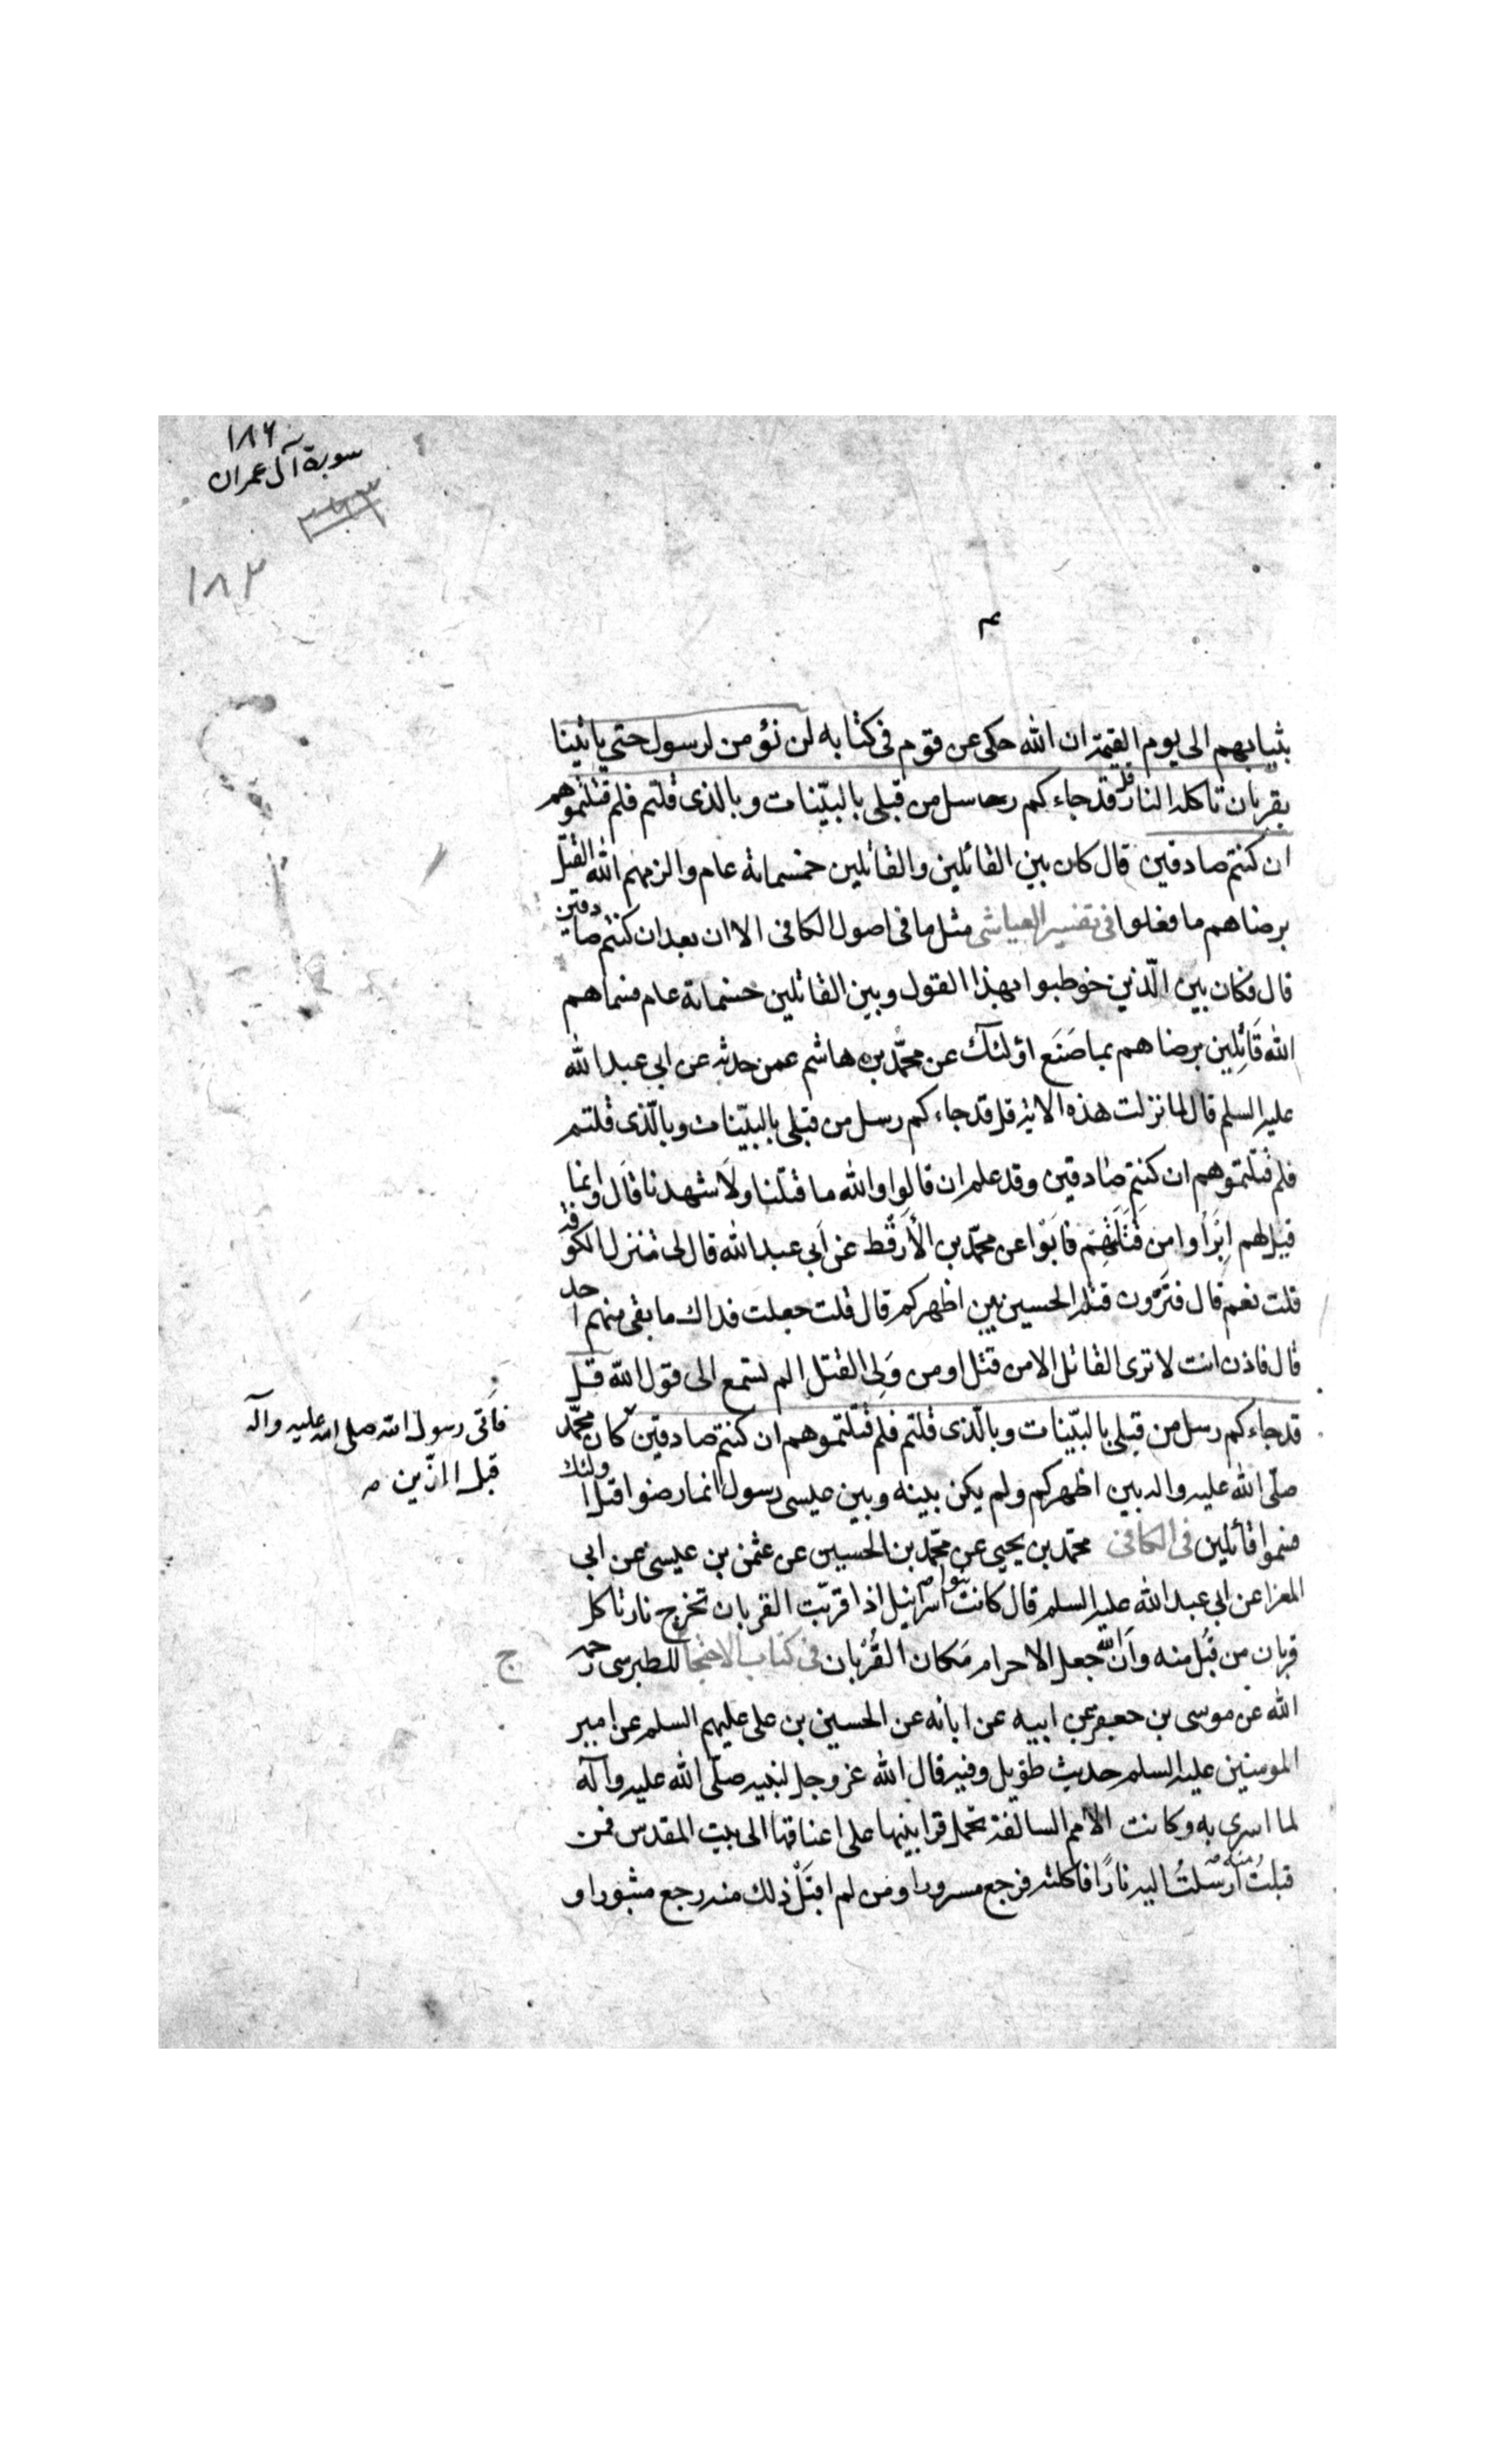 ١٨٦
سورة آل عمران
١٨٣
بثيابهم الى يوم القيمة ان الله حكى عن قوم فى كتابه لن نؤمن لرسول حتى ياتينا
بقربان تاكله النار قل قد جاءكم رسل من قبلى بالبيّنات وبالذى قلتم فلم قتلتموهم
ان كنتم صادقين قال كان بين القائلين والقاتلين خمسمائة عام والزمهم الله القتل
برضاهم ما فعلوا فى تفسير العياشى مثل ما فى اصول الكافى الا ان بعد ان كنتم صادقين
قال فكان بين الّذين خوطبوا بهذا القول وبين القاتلين خمسمائة عام فسماهم
الله قَاتِلين برضاهم بما صَنَع اولئك عن محمّد بن هاشم عمن حدثه عن ابى عبد الله
عليه السلم قال لما نزلت هذه الاية قل قد جاءكم رسل من قبلى بالبيّنات وبالّذى قلتم
فلم قتلتموهم ان كنتم صادقين وقد علم ان قالوا والله ما قتلنا ولا شهدنا قال وانما
قيل لهم ابرَأُوا من قَتَلَتِهِم فابَوْا عن محمّد بن الأرقط عن اَبى عبد الله قال لى تنزل الكوفة
قلت نعم قال فتَرَون قتلة الحسين بين اظهركم قال قلت جعلت فداك ما بقى منهم احد
قال فاذن انت لا ترى القاتل الا من قتل او من وَلِىَ القتل الم تسمع الى قول الله قل
قد جاءكم رسل من قبلى بالبيّنات وبالّذى قلتم فلم قتلتموهم ان كنتم صادقين كان محمّد
فاَتى رسول الله صلى الله عليه وآله
قبل الذين
صلّى الله عليه واله بين اظهركم ولم يكن بينه وبين عيسى رسول انما رضوا قتل اولئك
فسموا قاتلين فى الكافى محمّد بن يحيى عن محمّد بن الحسين عن عثمن بن عيسى عن ابى
المعزا عن ابى عبد الله عليه السلم قال كانت بنوا اسرائيل اذا قربّت القربان تخرج نار تاكل
قربان من قُبُل منه وان الله جعل الاحرام مَكان القُرْبان فى كتاب الاحتجاج للطبرسى رحمه
ج
الله عن موسى بن جعفر عن ابيه عن ابائه عن الحسين بن على عليهم السلم عن امير
المومنين عليه السلم حديث طويل وفيه قال الله عز وجل لنبيه صلّى الله عليه وآله
لما اسرى به وكانت الامم السالفة تحمل قرابينها على اعناقها الى بيت المقدس فمن
قبلتُ منه ارسَلتُ اليه نارًا فاكلته فرجع مسرورا ومن لم اقبَلْ ذلك منه رجع مثبورا و